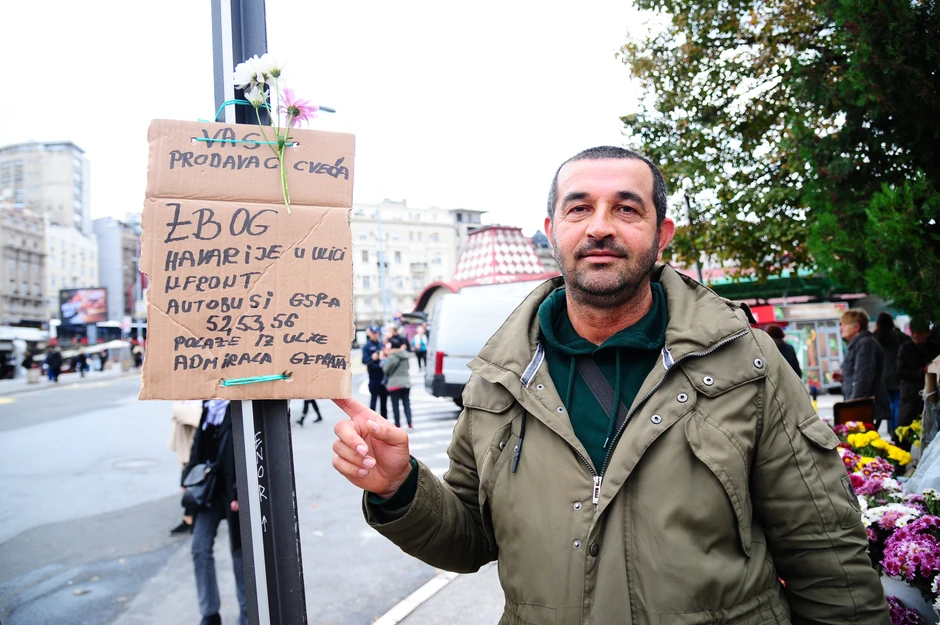 VAŠ
PRODAVAC CVEĆA
ZBOG
HAVARIJE U ULICI
N.FRONT
AUTOBUSI GSPa
52,53,56
POLAZE IZ ULICE
ADMIRALA GEPRATA